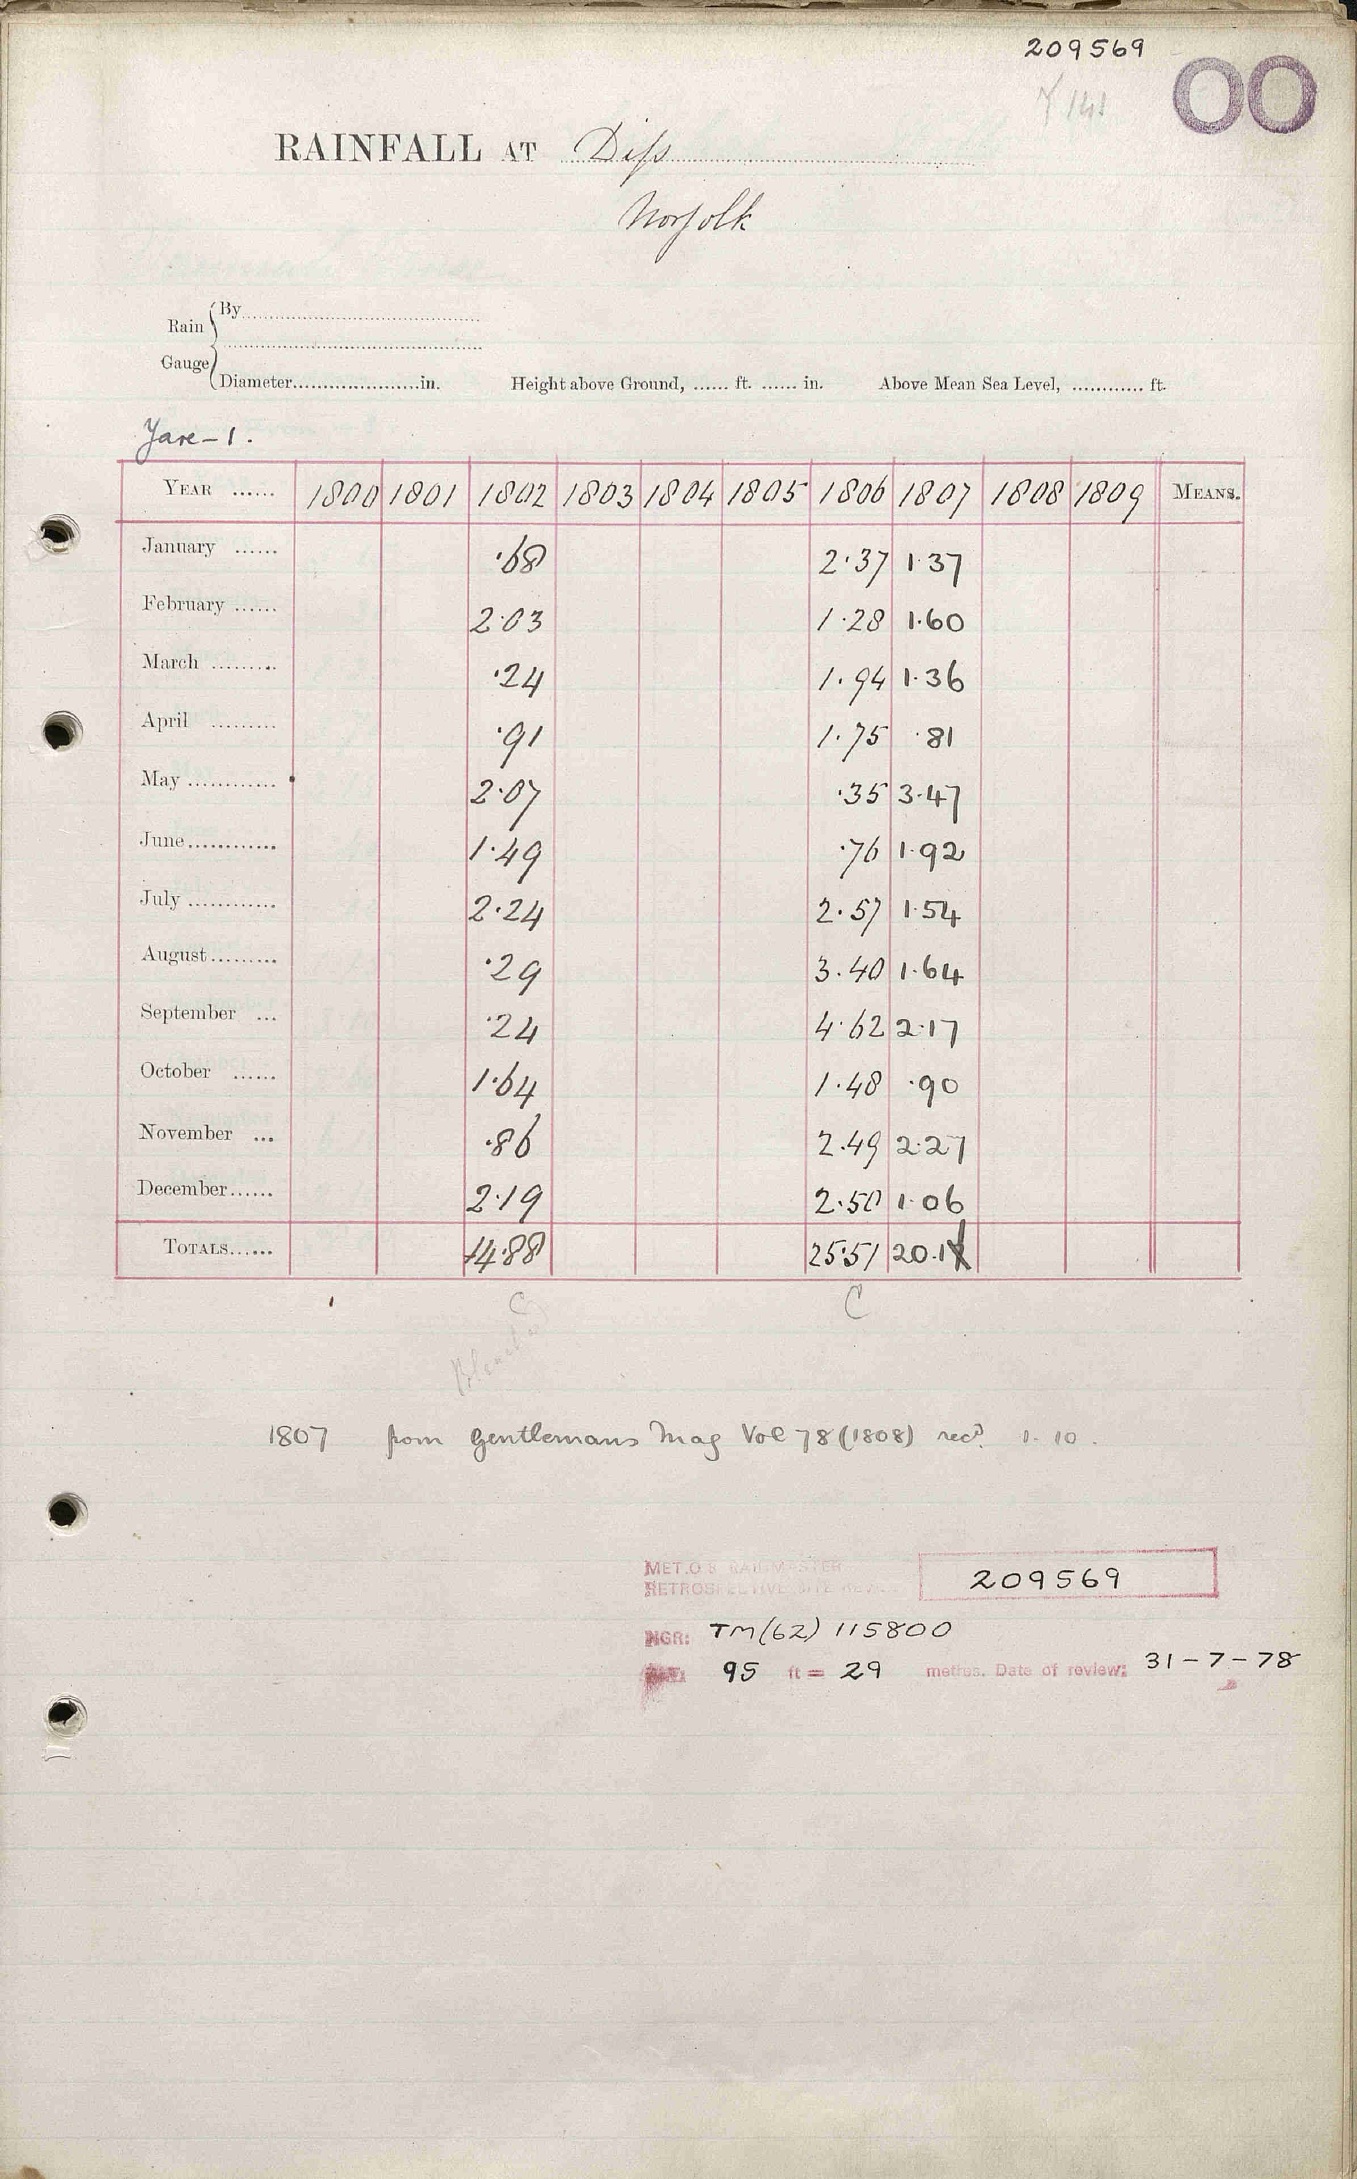 209569
00
RAINFALL AT Diss
Norfolk
Rain Gauge
By
Diameter in. Height above Ground, ft. in. Above Mean Sea Level, ft.
Yare - 1.
YEAR 1800 1801 1802 1803 1804 1805 1806 1807 1808 1809 MEANS.
January .68 2.37 1.37
February 2.03 1.28 1.60
March .24 1.94 1.36
April .91 1.75 .81
May 2.07 .35 3.47
June 1.49 .76 1.92
July 2.24 2.57 1.54
August .29 3.40 1.64
September .24 4.62 2.17
October 1.64 1.48 .90
November .86 2.49 2.27
December 2.19 2.50 1.06
TOTALS 14.88 25.51 20.1
C C
1807 from Gentlemans Mag Vol 78 (1808) recd. 1.10.
MET.O.8 RAINMASTER
RETROSPECTIVE SITE REVIEW 209569
NGR: TM(62) 115800
95 ft = 29 metres. Date of review: 31-7-78